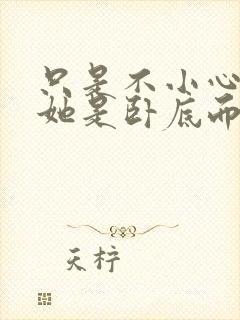 只是不小心
她是卧底而
天柠